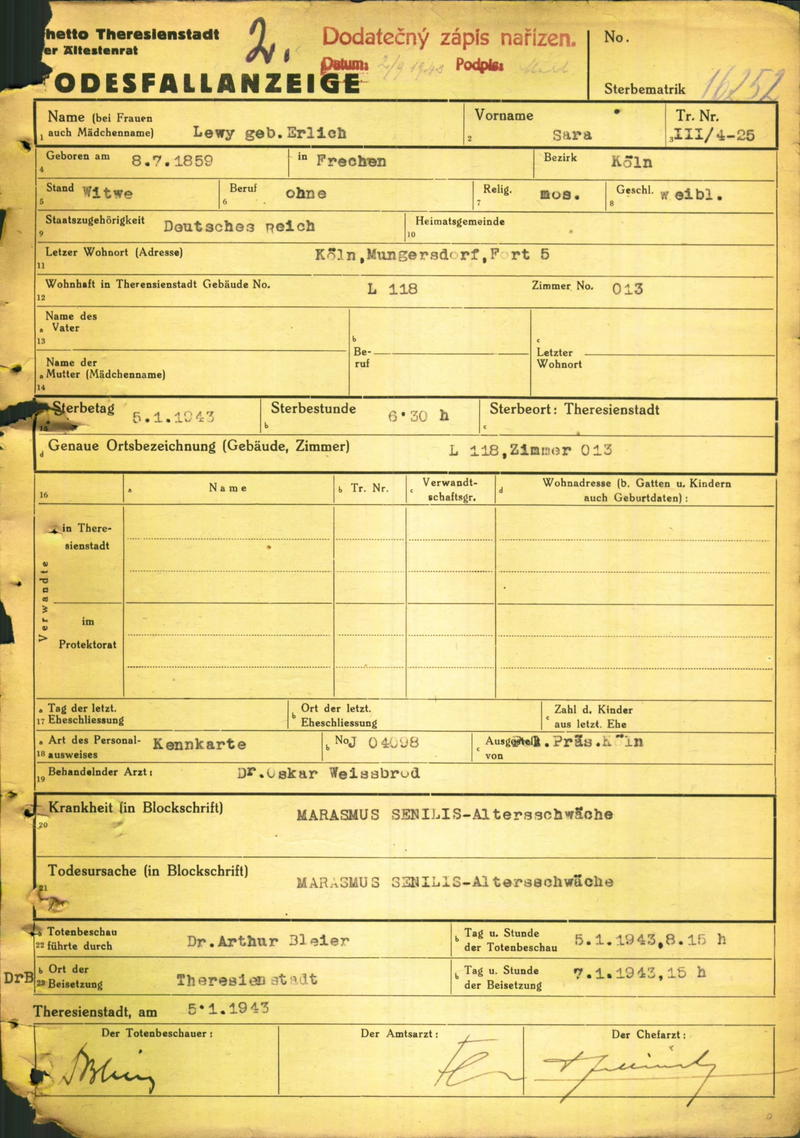 hetto Theresienstadt
er Ältestenrat
2.
Dodatečný zápis nařízen.
Datum: 1943 Podpis:
ODESFALLANZEIGE
No.
Sterbematrik 16252
Name (bei Frauen
1 auch Mädchenname) Lewy geb.Erlich
Vorname
2 Sara
Tr. Nr.
3 III/4-25
Geboren am 8.7.1859 in Frechen Bezirk Köln
4
Stand Witwe Beruf ohne Relig. mos. Geschl. weibl.
5 6 7 8
Staatszugehörigkeit Deutsches Reich Heimatsgemeinde
9 10
Letzer Wohnort (Adresse) Köln,Mungersdorf,Fort 5
11
Wohnhaft in Therensienstadt Gebäude No. L 118 Zimmer No. 013
12
Name des
a Vater
13
b
Be-
ruf
c
Letzter
Wohnort
Name der
a Mutter (Mädchenname)
14
Sterbetag 5.1.1943 Sterbestunde 6·30 h Sterbeort: Theresienstadt
b c
d Genaue Ortsbezeichnung (Gebäude, Zimmer) L 118,Zimmer 013
16 a Name b Tr. Nr. c Verwandt-
schaftsgr. d Wohnadresse (b. Gatten u. Kindern
auch Geburtdaten) :
Verwandte
in There-
sienstadt
im
Protektorat
a Tag der letzt.
17 Eheschliessung
b Ort der letzt.
Eheschliessung
c Zahl d. Kinder
aus letzt. Ehe
a Art des Personal-
18 ausweises Kennkarte
b No J 04098
c Ausgestellt
von Präs.Köln
19 Behandelnder Arzt: Dr.Oskar Weissbrod
Krankheit (in Blockschrift) MARASMUS SENILIS-Altersschwäche
20
Todesursache (in Blockschrift) MARASMUS SENILIS-Altersschwäche
21
Totenbeschau
22 führte durch Dr.Arthur Bleier
b Tag u. Stunde
der Totenbeschau 5.1.1943,8.15 h
DrB
b Ort der
23 Beisetzung Theresienstadt
b Tag u. Stunde
der Beisetzung 7.1.1943,15 h
Theresienstadt, am 5·1.1943
Der Totenbeschauer: Der Amtsarzt: Der Chefarzt: